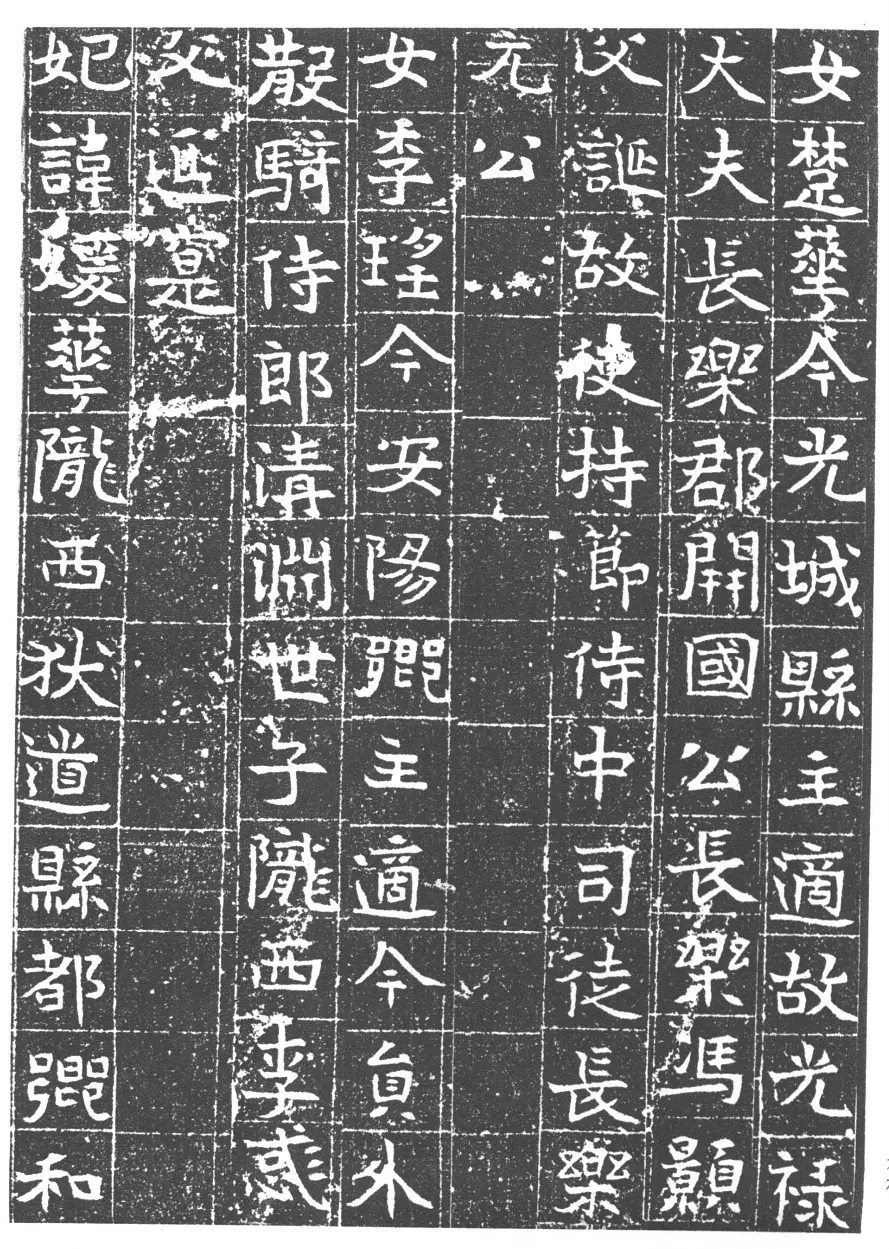 女楚華今光城縣主適故光祿
大夫長樂郡開國公長樂馮顥
父誕故使持節侍中司徒長樂
元公
女季瑤今安陽鄉主適今員外
散騎侍郎清淵世子隴西李彧
父延寔
妃諱媛華隴西狄道縣都鄉和